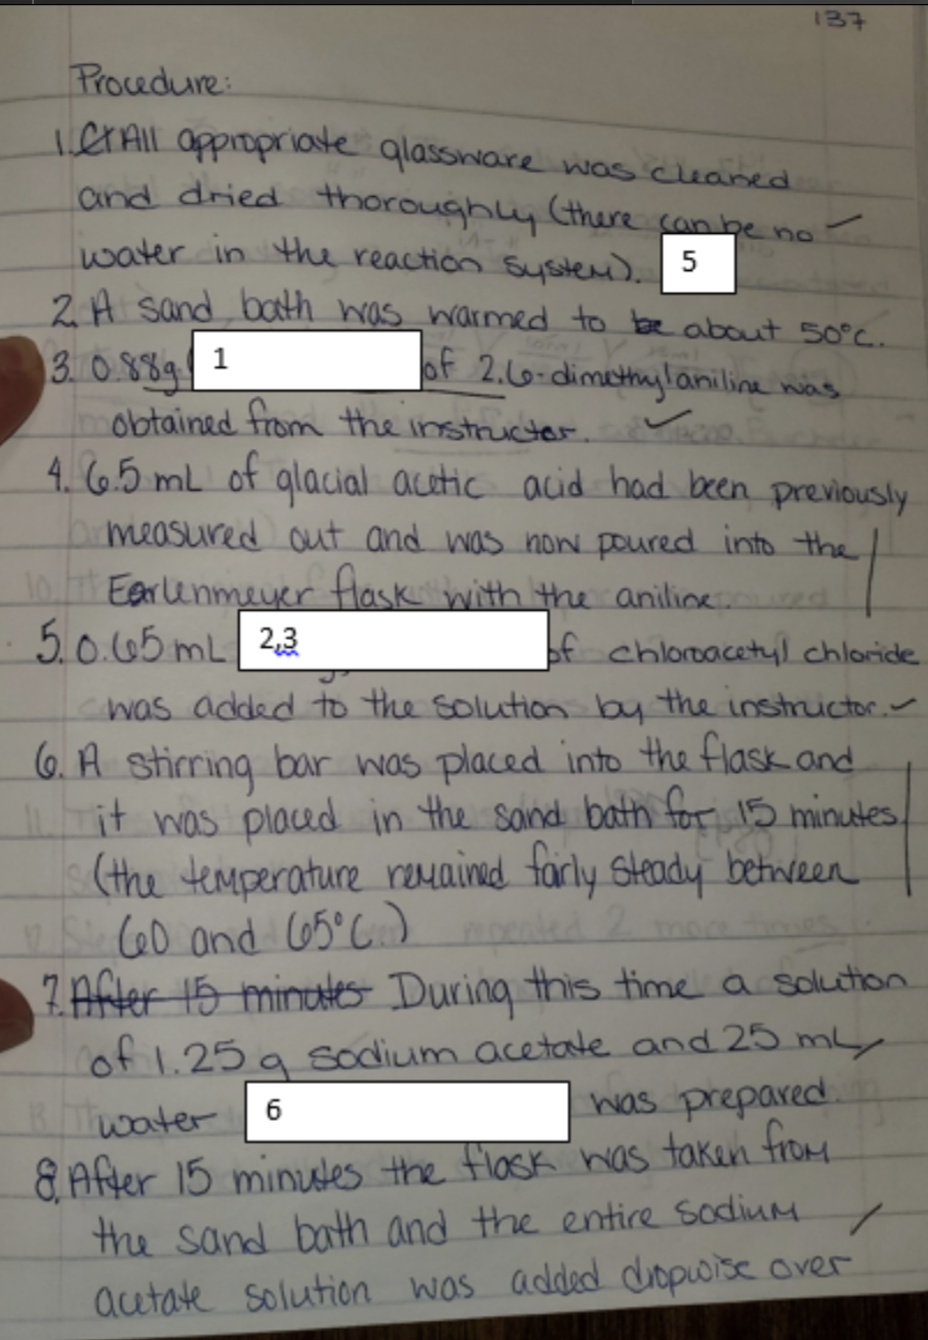 137
Procedure:
1. All appropriate glassware was cleaned
and dried thoroughly (there can be no
water in the reaction system). 5
2. A sand bath was warmed to be about 50°C.
3. 0.88g 1 of 2,6-dimethylaniline was
obtained from the instructor.
4. 6.5 mL of glacial acetic acid had been previously
measured out and was now poured into the
Earlenmeyer flask with the aniline.
5. 0.65 mL 2,3 of chloroacetyl chloride
was added to the solution by the instructor.
6. A stirring bar was placed into the flask and
it was placed in the sand bath for 15 minutes
(the temperature remained fairly steady between
60 and 65°C)
7. After 15 minutes During this time a solution
of 1.25 g sodium acetate and 25 mL
water 6 was prepared.
8. After 15 minutes the flask was taken from
the sand bath and the entire sodium
acetate solution was added dropwise over